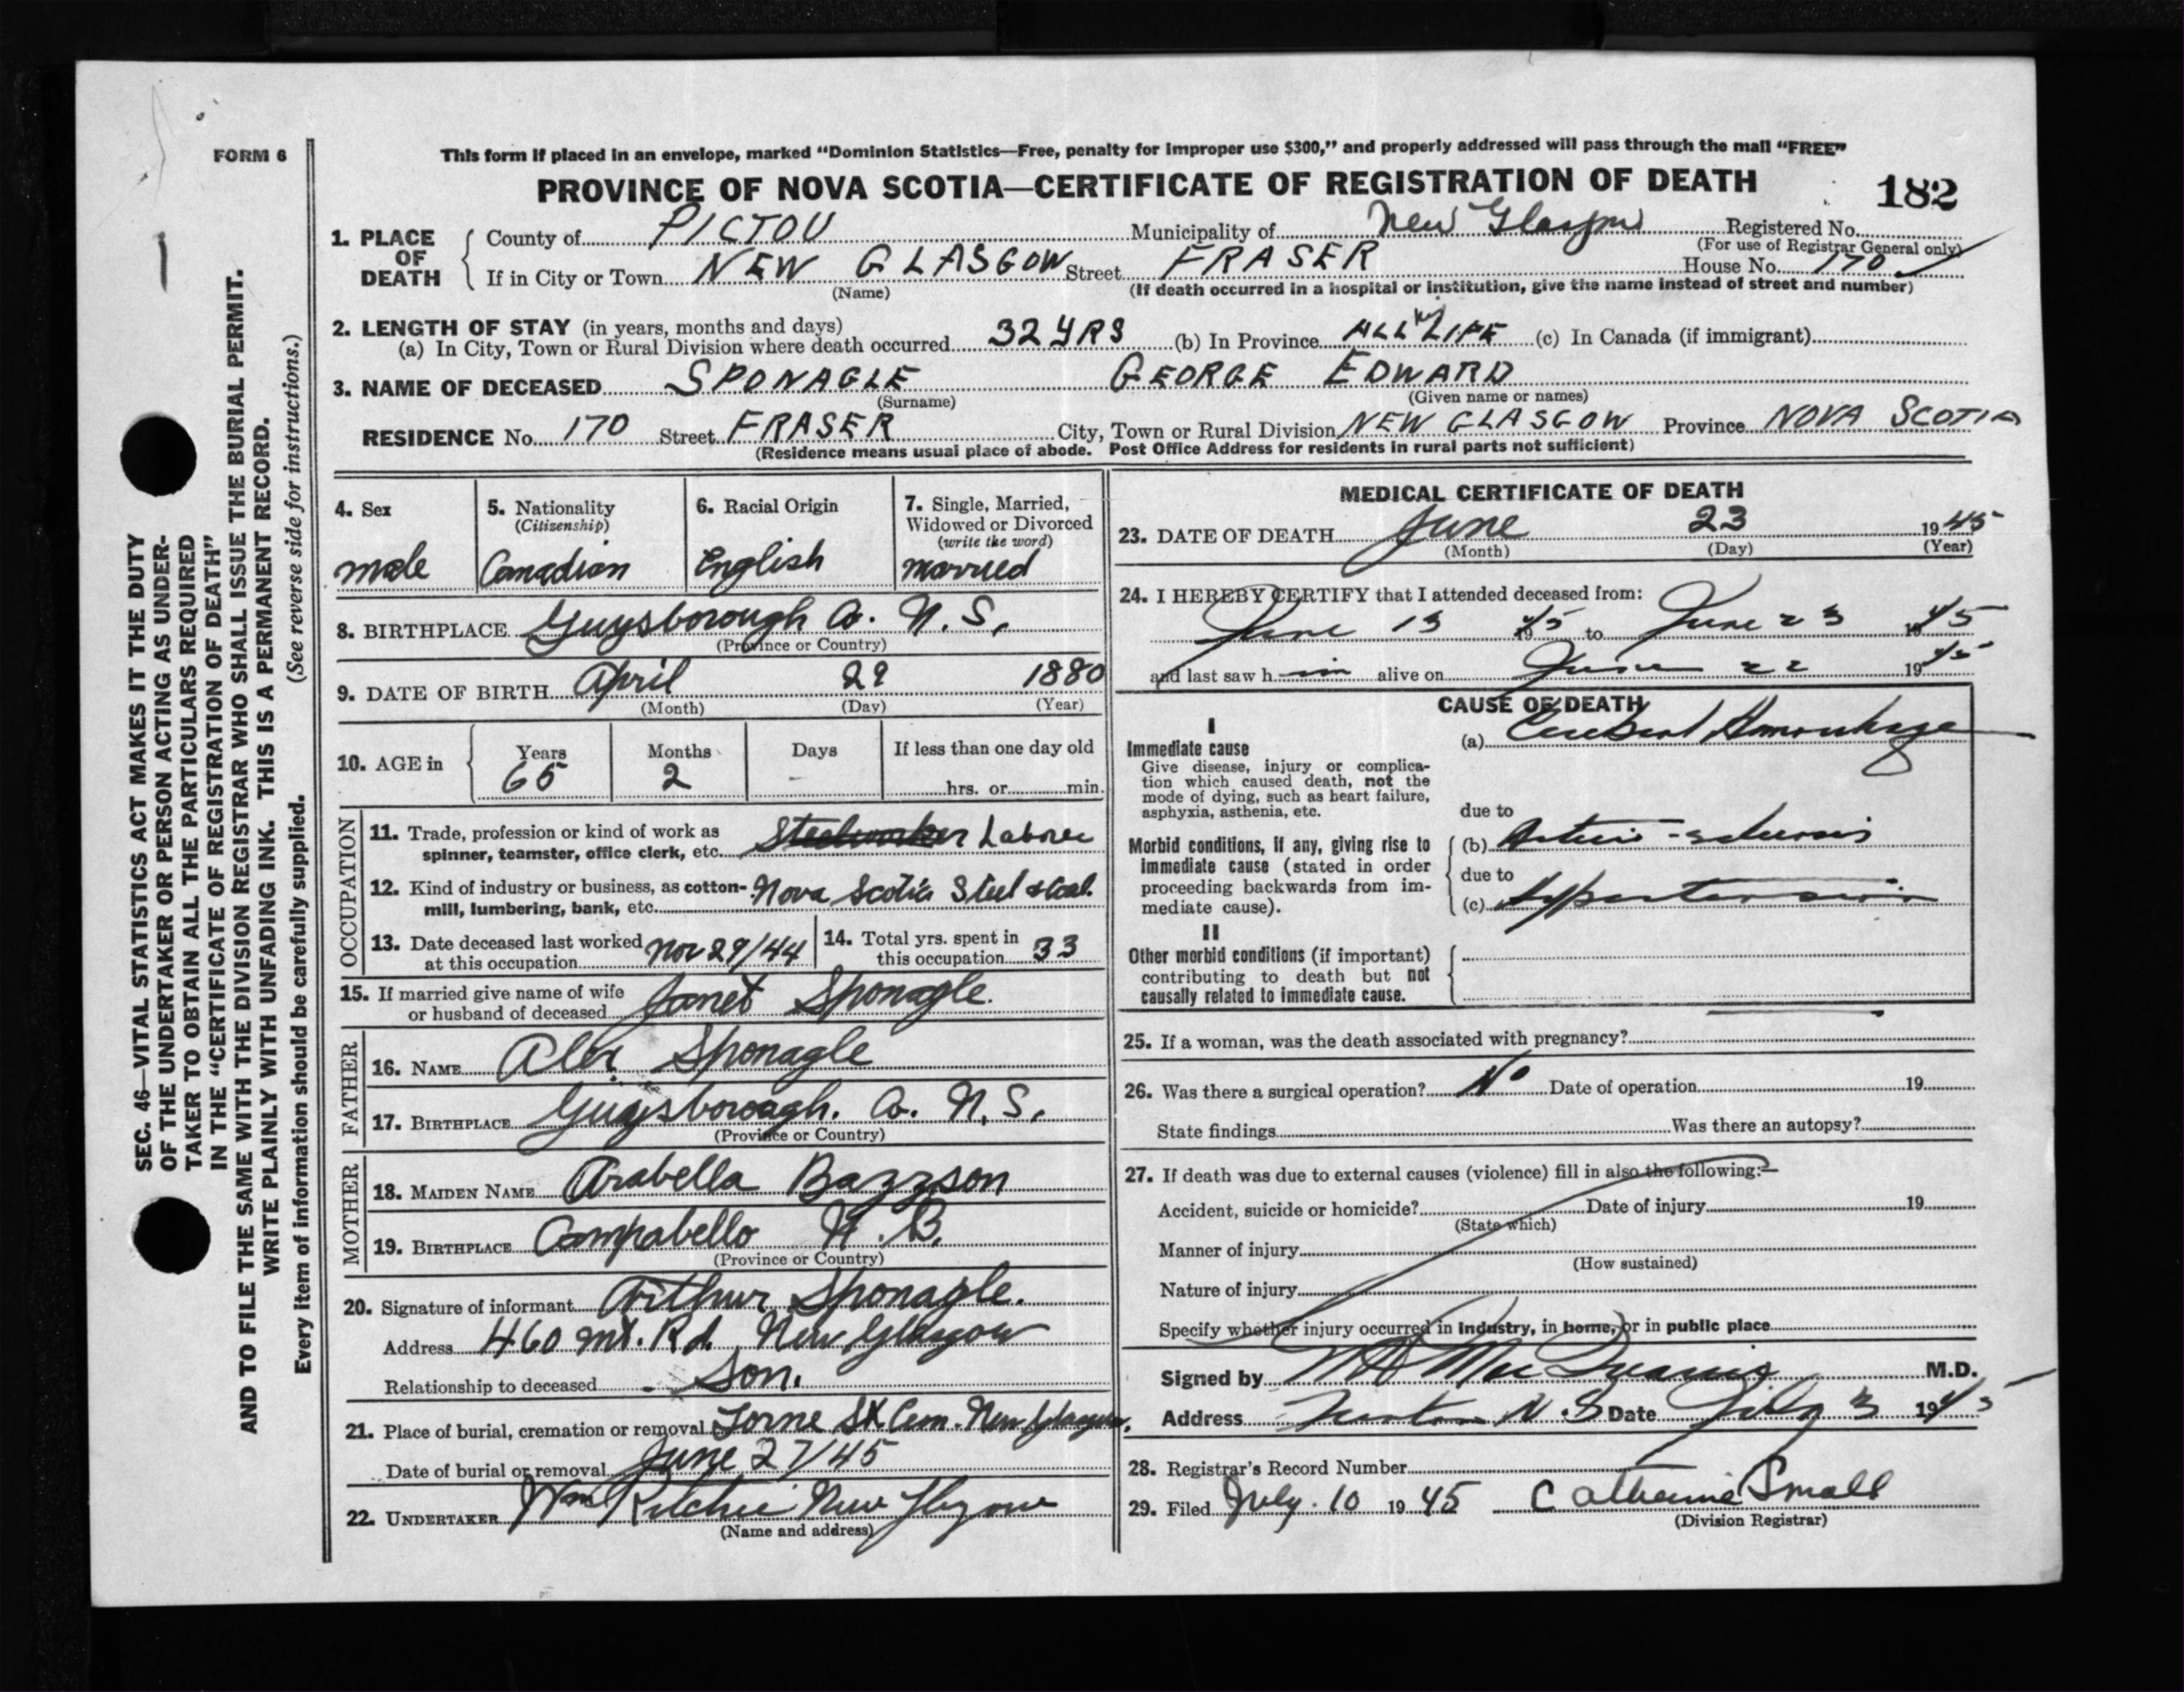 FORM 6
This form if placed in an envelope, marked “Dominion Statistics—Free, penalty for improper use $300,” and properly addressed will pass through the mail “FREE”
PROVINCE OF NOVA SCOTIA—CERTIFICATE OF REGISTRATION OF DEATH
182
1. PLACE OF DEATH
County of PICTOU Municipality of New Glasgow Registered No.
(For use of Registrar General only)
If in City or Town NEW GLASGOW Street FRASER House No. 170
(Name) (If death occurred in a hospital or institution, give the name instead of street and number)
2. LENGTH OF STAY (in years, months and days)
(a) In City, Town or Rural Division where death occurred 32 YRS (b) In Province ALL LIFE (c) In Canada (if immigrant)
3. NAME OF DECEASED SPONAGLE GEORGE EDWARD
(Surname) (Given name or names)
RESIDENCE No. 170 Street FRASER City, Town or Rural Division NEW GLASGOW Province NOVA SCOTIA
(Residence means usual place of abode. Post Office Address for residents in rural parts not sufficient)
4. Sex
male
5. Nationality
(Citizenship)
Canadian
6. Racial Origin
English
7. Single, Married,
Widowed or Divorced
(write the word)
married
8. BIRTHPLACE Guysborough Co. N.S.
(Province or Country)
9. DATE OF BIRTH April 29 1880
(Month) (Day) (Year)
10. AGE in
Years Months Days If less than one day old
65 2 - hrs. or min.
OCCUPATION
11. Trade, profession or kind of work as
spinner, teamster, office clerk, etc. Steelworker Laborer
12. Kind of industry or business, as cotton-
mill, lumbering, bank, etc. Nova Scotia Steel & Coal.
13. Date deceased last worked
at this occupation Nov 29/44
14. Total yrs. spent in
this occupation 33
15. If married give name of wife
or husband of deceased Janet Sponagle.
FATHER
16. NAME Alex Sponagle
17. BIRTHPLACE Guysborough. Co. N.S.
(Province or Country)
MOTHER
18. MAIDEN NAME Arabella Bazzson
19. BIRTHPLACE Campabello N.B.
(Province or Country)
20. Signature of informant Arthur Sponagle.
Address 460 Mt. Rd. New Glasgow
Relationship to deceased Son.
21. Place of burial, cremation or removal Lorne St Cem. New Glasgow.
Date of burial or removal June 27/45
22. UNDERTAKER Wm Ritchie New Glasgow
(Name and address)
MEDICAL CERTIFICATE OF DEATH
23. DATE OF DEATH June 23 1945
(Month) (Day) (Year)
24. I HEREBY CERTIFY that I attended deceased from:
June 13 1945 to June 23 1945
and last saw h im alive on June 22 1945
CAUSE OF DEATH
I
Immediate cause
Give disease, injury or complica-
tion which caused death, not the
mode of dying, such as heart failure,
asphyxia, asthenia, etc.
(a) Cerebral Hemorrhage
due to
Morbid conditions, if any, giving rise to
immediate cause (stated in order
proceeding backwards from im-
mediate cause).
(b) Arterio-sclerosis
due to
(c) Hypertension
II
Other morbid conditions (if important)
contributing to death but not
causally related to immediate cause.
25. If a woman, was the death associated with pregnancy?
26. Was there a surgical operation? No Date of operation 19
State findings Was there an autopsy?
27. If death was due to external causes (violence) fill in also the following:—
Accident, suicide or homicide? Date of injury 19
(State which)
Manner of injury
(How sustained)
Nature of injury
Specify whether injury occurred in industry, in home, or in public place
Signed by M.D.
Address N.S. Date July 3 1945
28. Registrar's Record Number
29. Filed July. 10 1945 Catherine Small
(Division Registrar)
SEC. 46—VITAL STATISTICS ACT MAKES IT THE DUTY
OF THE UNDERTAKER OR PERSON ACTING AS UNDER-
TAKER TO OBTAIN ALL THE PARTICULARS REQUIRED
IN THE “CERTIFICATE OF REGISTRATION OF DEATH”
AND TO FILE THE SAME WITH THE DIVISION REGISTRAR WHO SHALL ISSUE THE BURIAL PERMIT.
WRITE PLAINLY WITH UNFADING INK. THIS IS A PERMANENT RECORD.
Every item of information should be carefully supplied. (See reverse side for instructions.)